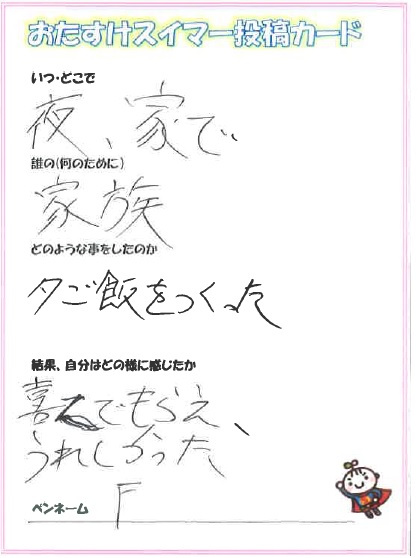 おたすけスイマー投稿カード
いつ・どこで
夜、家で、
誰の(何のために)
家族
どのような事をしたのか
夕ご飯をつくった
結果、自分はどの様に感じたか
喜んでもらえ、
うれしかった
ペンネーム F